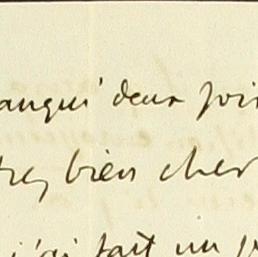 manqué deux foi
très bien cher
j'ai fait un p